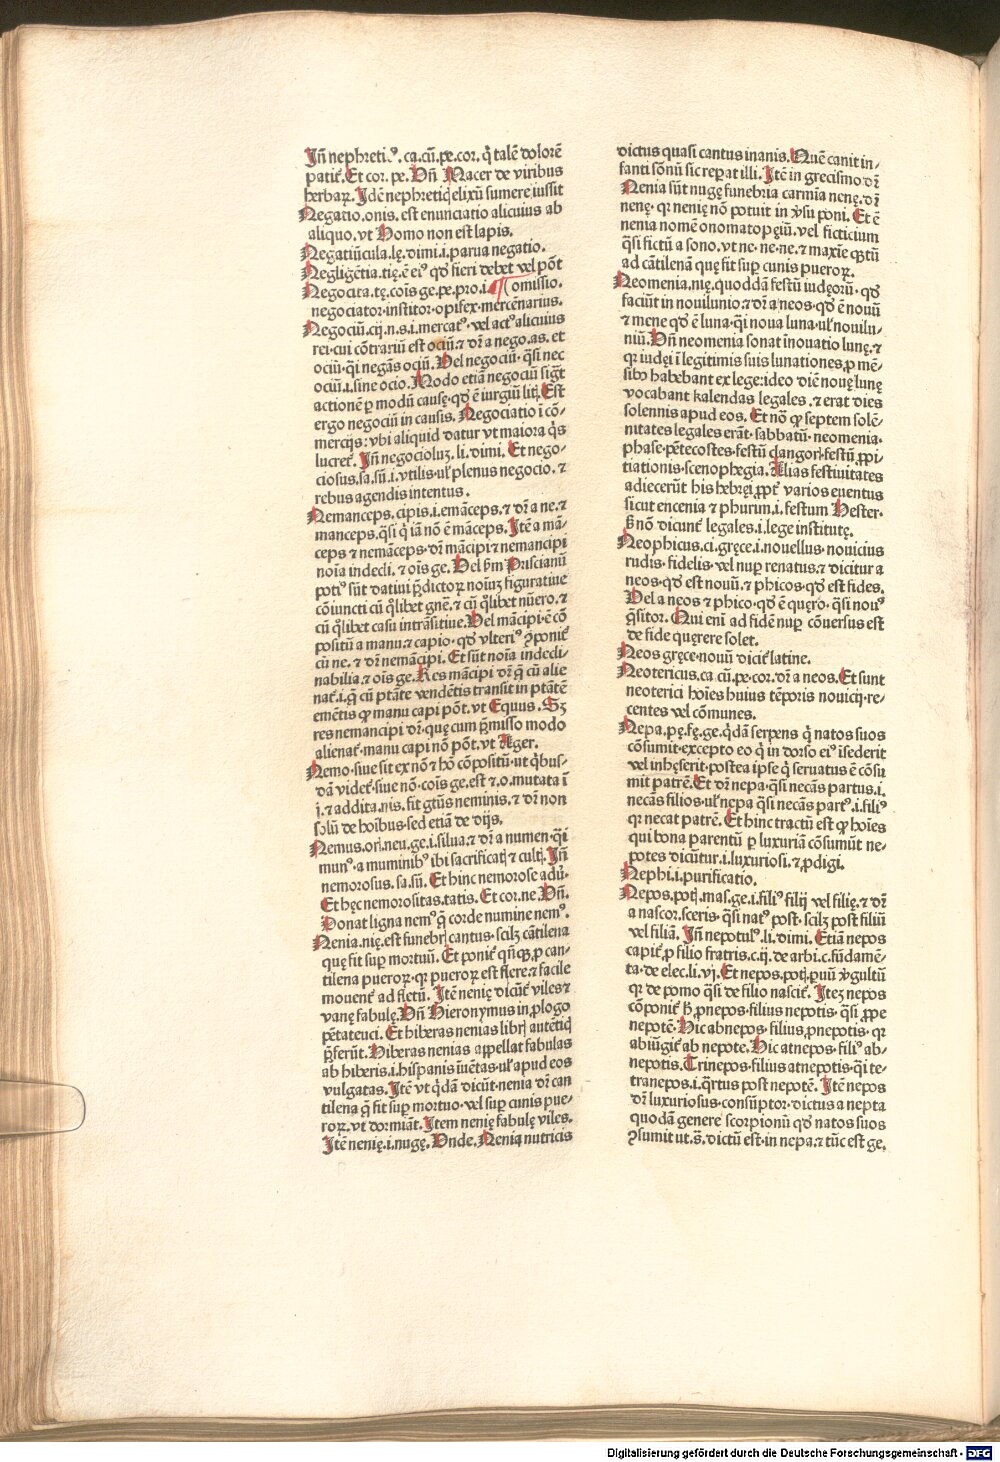 Iñ nephretiꝰ. ca. cū. pe. cor. q̇ talē dolorē
patit̃. Et cor. pe. Vñ Macer de viribus
herbaꝝ. Idē nephretiq̃ elixū sumere iussit
Negatio. onis. est enunciatio alicuius ab
aliquo. vt Homo non est lapis.
Negatiūcula. lę. dimi. i. parua negatio.
Negligētia. tię. ē eiꝰ qđ fieri debet vel pōt
Negocita. tę. cōis ge. pe. pro. i. (omissio.
negociator· institor· opifex· mercenarius.
Negociū. cij. n. s. i. mercatꝰ· vel actꝰ alicuius
rei· cui cōtrariū est ociū. ⁊ dr̄ a nego. as. et
ociū· q̄i negās ociū. Vel negociū· q̄si nec
ociū. i. sine ocio. Modo etiā negociū sigt̃
actionē ꝑ modū causę· qđ ē iurgiū litꝭ. Est
ergo negociū in causis. Negociatio ī cō-
mercijs: vbi aliquid datur vt maiora q̄s
lucret̃. Iñ negocioluꝫ. li. dimi. Et nego-
ciosus. sa. sū. i. vtilis· ul̕ plenus negocio. ⁊
rebus agendis intentus.
Nemanceps. cipis. i. emāceps. ⁊ dr̄ a ne. ⁊
manceps. q̄si q̇ iā nō ē māceps. Itē a mā-
ceps ⁊ nemāceps· dr̄ mācipi ⁊ nemancipi
noīa indecli. ⁊ oīs ge. Vel ẜm Priscianū
potiꝰ sūt datiui p̄dictoꝝ noīuꝫ figuratiue
cōiuncti cū q̄libet gñe. ⁊ cū q̄libet nūero. ⁊
cū q̄libet casu intrāsitiue. Vel mācipi ē cō
positū a manu. ⁊ capio· qđ vlteriꝰ ꝓponit̃
cū ne. ⁊ dr̄ nemācipi. Et sūt noīa indecli-
nabilia. ⁊ oīs ge. Res mācipi dr̄ q̄ cū alie
nat̃. i. q̄ cū ptāte vendētis transit in ptātē
emētis ꝙ manu capi pōt. vt Equus. Sꝫ
res nemancipi dr̄· que cum p̄misso modo
alienat̃· manu capi nō pōt. vt Ager.
Nemo· siue sit ex nō ⁊ hō cōpositū· ut q̇bus-
dā videt̃· siue nō· cōis ge. est ⁊ .o. mutata ī
.i. ⁊ addita .nis. fit gt̄us neminis. ⁊ dr̄ non
solū de hoībus· sed etiā de dijs.
Nemus. orꝭ. neu. ge. i. silua. ⁊ dr̄ a numen· q̄i
munꝰ· a numinibꝰ ibi sacrificatꝭ ⁊ cultꝭ. Iñ
nemorosus. sa. sū. Et hinc nemorose adū·
Et hęc nemorositas. tatis. Et cor. ne. Vñ.
Donat ligna nemꝰ q̄ corde numine nemꝰ.
Nenia. nię. est funebrꝭ cantus· scilꝫ cātilena
quę fit sup mortuū. Et ponit̃ qñqꝫ ꝓ can-
tilena pueroꝝ· qꝛ pueroꝝ est flere. ⁊ facile
mouent̃ ad fletū. Itē nenię dicūt̃ viles ⁊
vanę fabulę. Vñ Hieronymus in ꝓlogo
pētateuci. Et hiberas nenias librꝭ autētiꝗ
p̄ferūt. Hiberas nenias appellat fabulas
ab hiberis. i. hispanis iuētas· ul̕ apud eos
vulgatas. Itē vt q̇dā dicūt· nenia dr̄ can
tilena q̄ fit sup mortuo· vel sup cunis pue-
roꝝ. vt dormiāt. Item nenię fabulę viles.
Itē nenię. i. nugę. Vnde. Nenia nutricis
dictus quasi cantus inanis. Quē canit in-
fanti sōnū sic reparat illi. Itē in grecismo dr̄
Nenia sūt nugę funebria carmīa nenę. dr̄
nenę· qꝛ nenię nō potuit in ꝟsu poni. Et ē
nenia nomē onomatopęiū. vel ficticium
q̄si fictū a sono. vt ne· ne· ne. ⁊ maxīe q̄tū
ad cātilenā quę fit sup cunis pueroꝝ.
Neomenia. nię. quoddā festū iudęorū· qđ
faciūt in nouilunio. ⁊ dr̄ a neos· qđ ē nouū
⁊ mene qđ ē luna· q̄i noua luna· ul̕ nouilu-
niū. Vñ neomenia sonat inouatio lunę. ⁊
qꝛ iudęi ī legitimis suis lunationes ꝓ mē-
sibꝰ habebant ex lege: ideo diē nouę lunę
vocabant kalendas legales. ⁊ erat dies
solennis apud eos. Et nō ꝙ septem solē-
nitates legales erāt· sabbatū· neomenia·
phase· pētecostes· festū clangorꝭ· festū ꝓpi-
tiationis· scenophegia. Alias festiuitates
adiecerūt his hębręi ꝓpt̃ varios euentus
sicut encenia ⁊ phurim. i. festum Hester·
ẜ nō dicunt̃ legales. i. lege institutę.
Neophicus. ci. gręce. i. nouellus· nouicius
rudis· fidelis· vel nup renatus. ⁊ dicitur a
neos· qđ est nouū. ⁊ phicos· qđ est fides.
Vel a neos ⁊ phico· qđ ē quęro· q̄si nouꝰ
q̄sitor. Qui enī ad fidē nup cōuersus est
de fide quęrere solet.
Neos gręce· nouū dicit̃ latine.
Neotericus. ca cū. pe. cor. dr̄ a neos. Et sunt
neoterici hoīes huius tēporis nouicij· re-
centes vel cōmunes.
Nepa. pę. fę. ge. q̇dā serpens q̇ natos suos
cōsumit· excepto eo q̇ in dorso eiꝰ īsederit
vel inhęserit· postea ipse q̇ seruatus ē cōsu
mit patrē. Et dr̄ nepa· q̄si necās partus. i.
necās filios· ul̕ nepa q̄si necās partꝰ. i. filiꝰ
qꝛ necat patrē. Et hinc tractū est ꝙ hoīes
qui bona parentū ꝑ luxuriā cōsumūt ne-
potes dicūtur. i. luxuriosi. ⁊ ꝓdigi.
Nephi. i. purificatio.
Nepos. potꝭ. mas. ge. i. filiꝰ filij vel filię. ⁊ dr̄
a nascor. sceris· q̄si natꝰ post· scilꝫ post filiū
vel filiā. Iñ nepotulꝰ. li. dimi. Etiā nepos
capit̃ ꝓ filio fratris. c. ij. de arbi. c. fūdamē-
ta· de elec. li. vj. Et nepos. potꝭ. puū ꝟgultū
qꝛ de pomo q̄si de filio nascit̃. Iteꝫ nepos
cōponit̃ ħ ꝓnepos· filius nepotis· q̄si ꝓpe
nepotē. Hic abnepos· filius ꝓnepotis· qꝛ
abiūgit̃ ab nepote. Hic atnepos· filiꝰ ab-
nepotis. Trinepos· filius atnepotis· q̄i te-
tranepos. i. q̄rtus post nepotē. Itē nepos
dr̄ luxuriosus· consūptor· dictus a nepta
quodā genere scorpionū qđ natos suos
ꝯsumit ut. s̄. dictū est· in nepa. ⁊ tūc est ge.
Digitalisierung gefördert durch die Deutsche Forschungsgemeinschaft - DFG